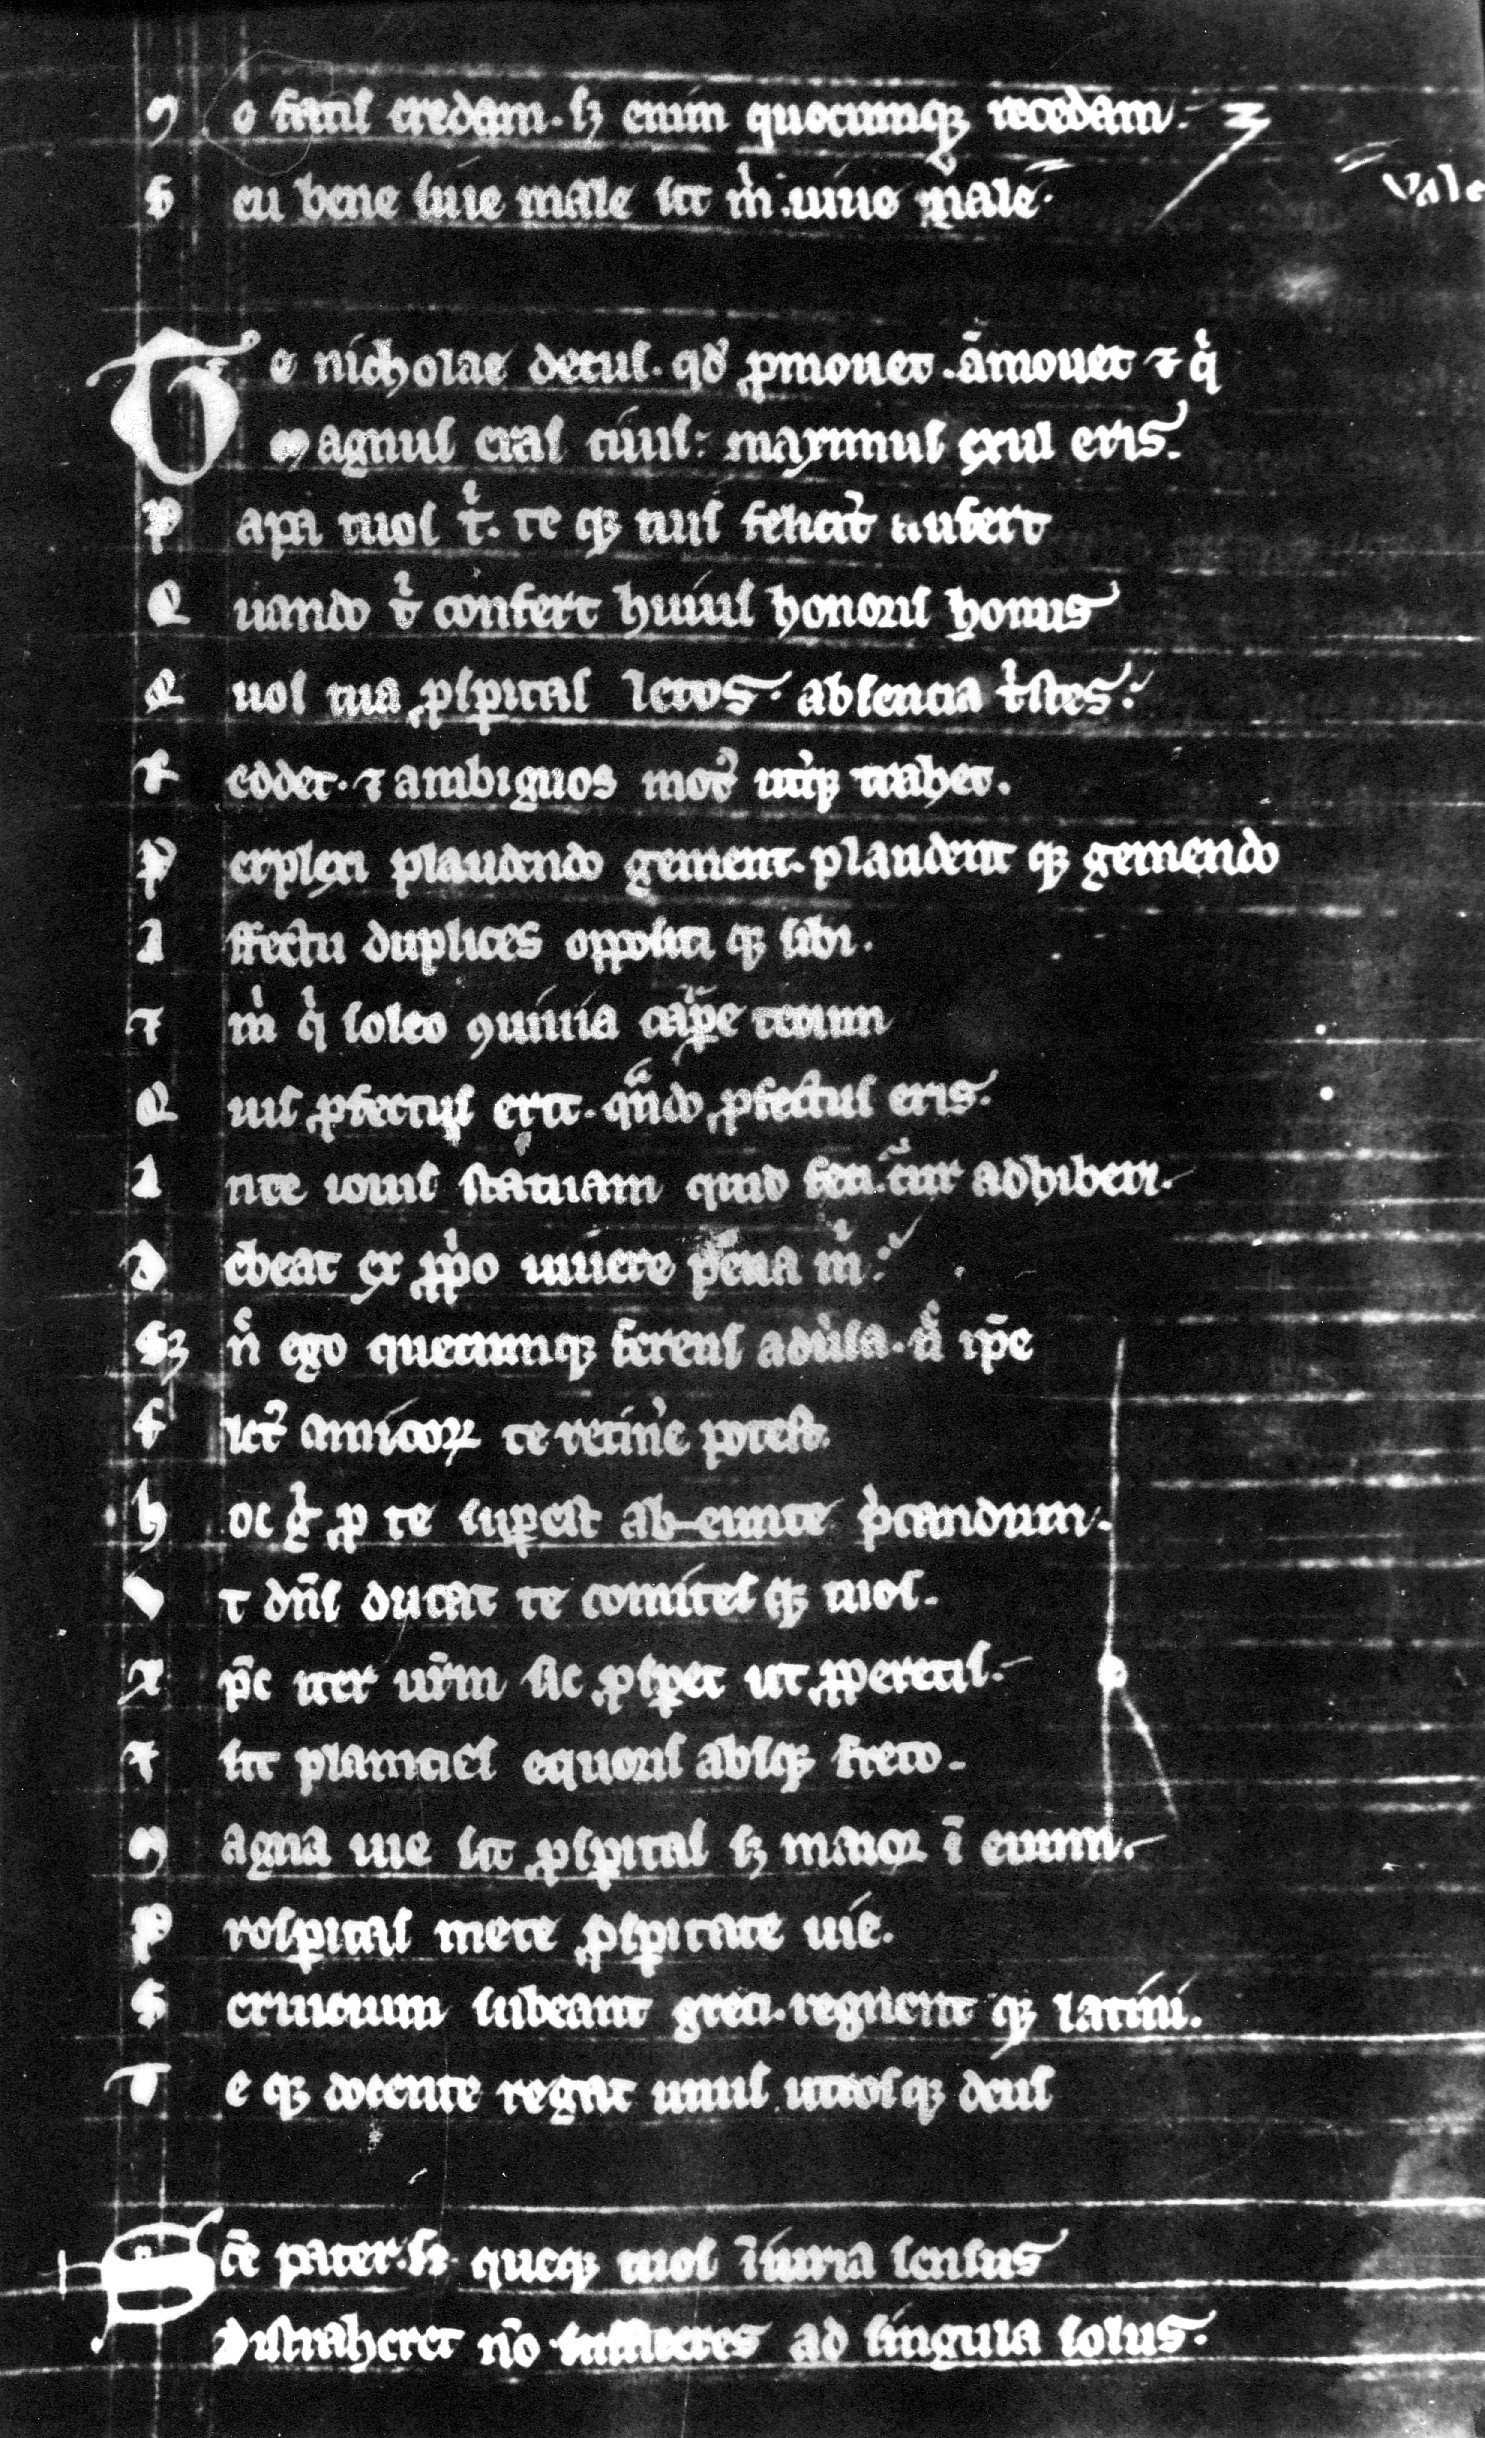 o fatis credam. sꝫ enim quocumqꝫ recedam.
S eu bene siue male sit m̍. uiuo ma̍le. Vale
Te nicholae decus. qď ꝓmouet. āmouet ⁊ q̍
Magnus eras ciuis: maximus exul eris.
P apa tuos t̍. te qꝫ tuis felicit͛ aufert
Q uando t̍ confert huius honoris honus
Q uos tua ꝓsꝑitas letos. absencia t̍stes.
R eddet. ⁊ ambiguos mot᷒ ut̍qꝫ trahet.
P erplexi plaudendo gement. plaudent qꝫ gemendo
A ffectu duplices oppositi qꝫ sibi.
⁊ m̍ q̍ soleo ꝯuiuia cap̄e tecum
Q uis ꝓfectus erit. qn̄do ꝓfectus eris.
A nte iouis statuam quid adhiberi.
D ebeat ex ꝓp̍o uiuere m̍.
Sꝫ n̄ ego quecumqꝫ ferens adu̍sa. n̄ ip̄e
F let᷒ amicoꝝ te retin̍e potest.
H oc g̍ ꝓ te suꝑest ab-eunte p̍candum.
V t dn̄s ducat te comites qꝫ tuos.
X p̄c iter ur̄m sic ꝓsꝑet ut ꝓꝑeretis.
⁊ sit planicies equoris absqꝫ freto.
M agna uie sit ꝓsꝑitas sꝫ maior ī euum.
P rosꝑitas mete ꝓsꝑitate uie.
S eruicium subeant greci. regnent qꝫ latini.
T e qꝫ docente regat unus utrosqꝫ deus
Sc̄e pater. si queqꝫ tuos īiuria sensus
Distraheret nō sufficeres ad singula solus.